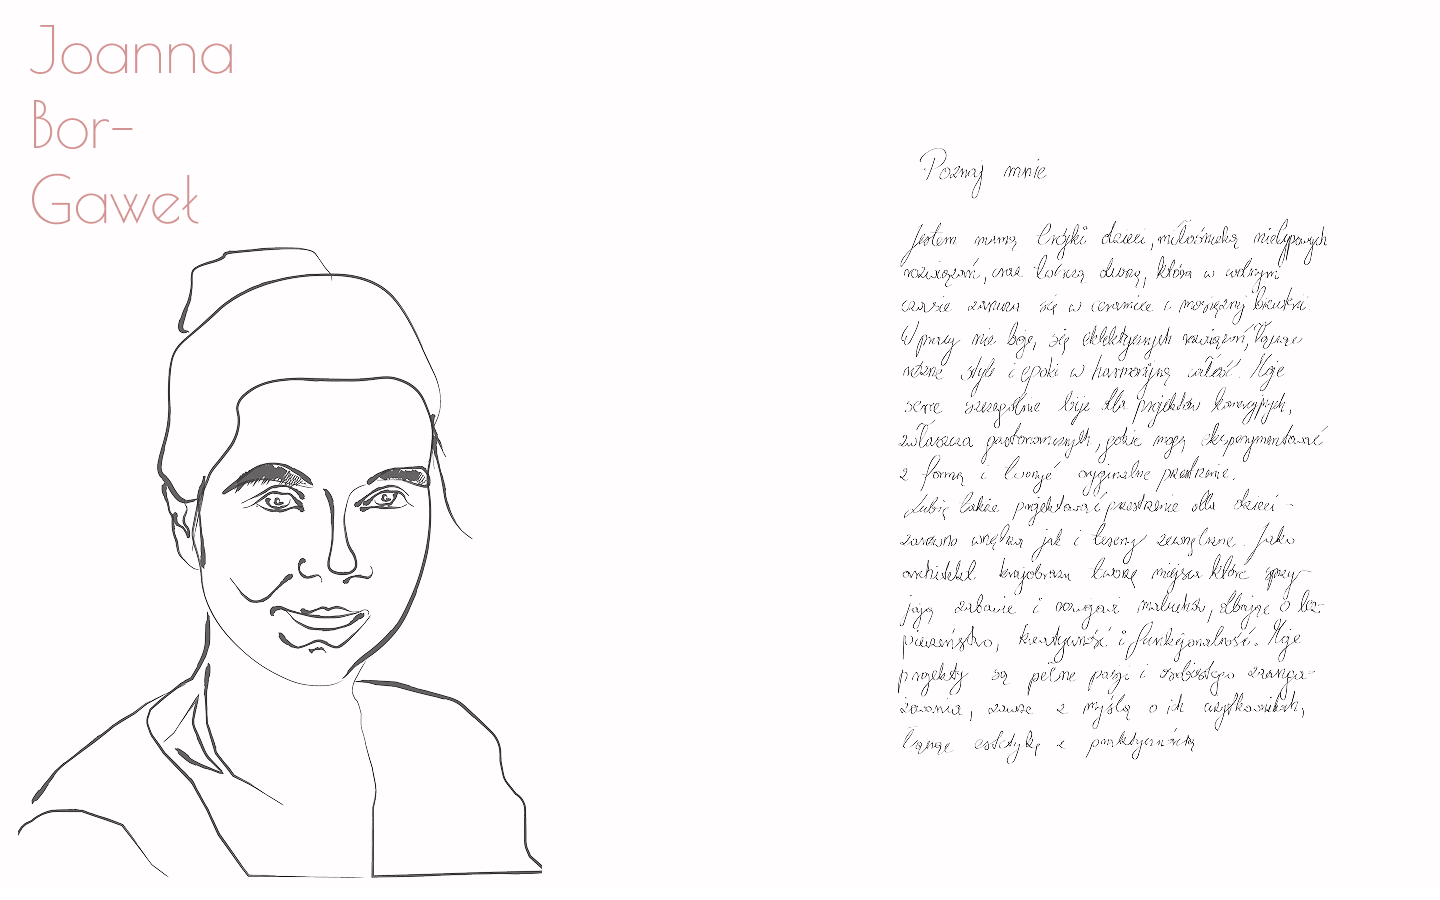 Joanna
Bor-
Gaweł
Poznaj mnie
Jestem mamą trójki dzieci, miłośniczką nietypowych
rozwiązań, oraz twórczą duszą, która w wolnym
czasie zanurza się w ceramice i mosiężnej biżuterii.
W pracy nie boję się eklektycznych rozwiązań, łącząc
różne style i epoki w harmonijną całość. Moje
serce szczególnie bije dla projektów komercyjnych,
zwłaszcza gastronomicznych, gdzie mogę eksperymentować
z formą i tworzyć oryginalne przestrzenie.
Lubię także projektować przestrzenie dla dzieci -
zarówno wnętrza jak i tereny zewnętrzne. Jako
architekt krajobrazu tworzę miejsca które sprzy-
jają zabawie i rozwojowi maluchów, dbając o bez-
pieczeństwo, kreatywność i funkcjonalność. Moje
projekty są pełne pasji i osobistego zaanga-
żowania, zawsze z myślą o ich użytkownikach,
łącząc estetykę z praktycznością